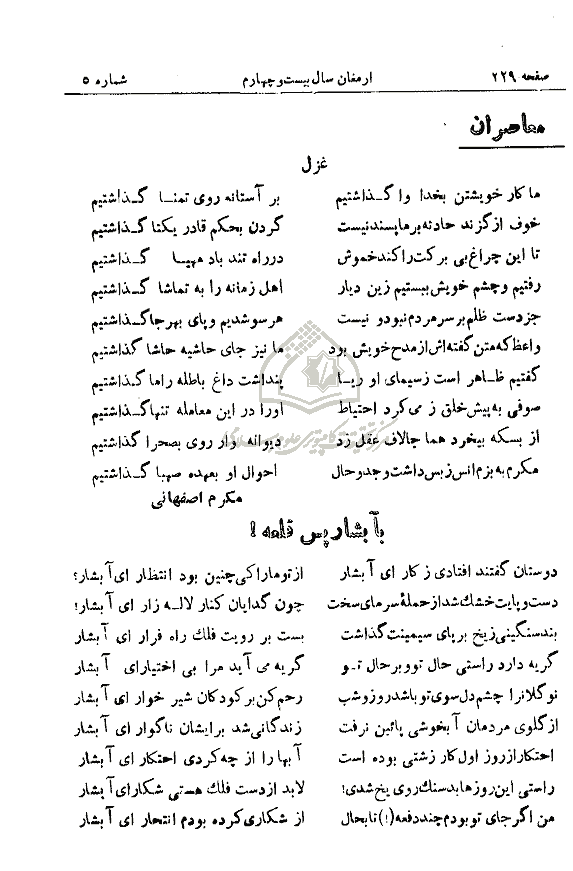 صفحه ۲۲۹ ارمغان سال بیست و چهارم شماره ۵
معاصران
غزل
ما کار خویشتن بخدا وا گذاشتیم بر آستانه روی تمنا گذاشتیم
خوف از گزند حادثه بر ما پسند نیست گردن بحکم قادر یکتا گذاشتیم
تا این چراغ بی برکت را کند خموش در راه تند باد مهیا گذاشتیم
رفتیم و چشم خویش ببستیم زین دیار اهل زمانه را به تماشا گذاشتیم
جز دست ظلم بر سر مردم نبود و نیست هر سو شدیم و پای بهر جا گذاشتیم
واعظ که متن گفته اش از مدح خویش بود ما نیز جای حاشیه حاشا گذاشتیم
گفتیم ظاهر است ز سیمای او ریا پنداشت داغ باطله را ما گذاشتیم
صوفی به پیش خلق ز می کرد احتیاط او را در این معامله تنها گذاشتیم
از بسکه بیخرد همه جا لاف عقل زد دیوانه وار روی بصحرا گذاشتیم
مکرم به بزم انس ز بس داشت وجد و حال احوال او بعهده صهبا گذاشتیم
مکرم اصفهانی
بآبشار پس قلعه !
دوستان گفتند افتادی ز کار ای آبشار از تو ما را کی چنین بود انتظار ای آبشار؟
دست و پایت خشك شد از حملهٔ سرمای سخت چون گدایان کنار لاله زار ای آبشار!
بند سنگینی ز یخ بر پای سیمینت گذاشت بست بر رویت فلك راه فرار ای آبشار
گریه دارد راستی حال تو و بر حال تو گریه می آید مرا بی اختیار ای آبشار
نو گلانرا چشم دل سوی تو باشد روز و شب رحم کن بر کودکان شیر خوار ای آبشار
از گلوی مردمان آبخوشی پائین نرفت زندگانی شد بر ایشان ناگوار ای آبشار
احتکار از روز اول کار زشتی بوده است آبها را از چه کردی احتکار ای آبشار
راستی این روزها بد سنك روی یخ شدی! لابد از دست فلك هستی شکار ای آبشار
من اگر جای تو بودم چند دفعه (!) تا بحال از شکاری کرده بودم انتحار ای آبشار